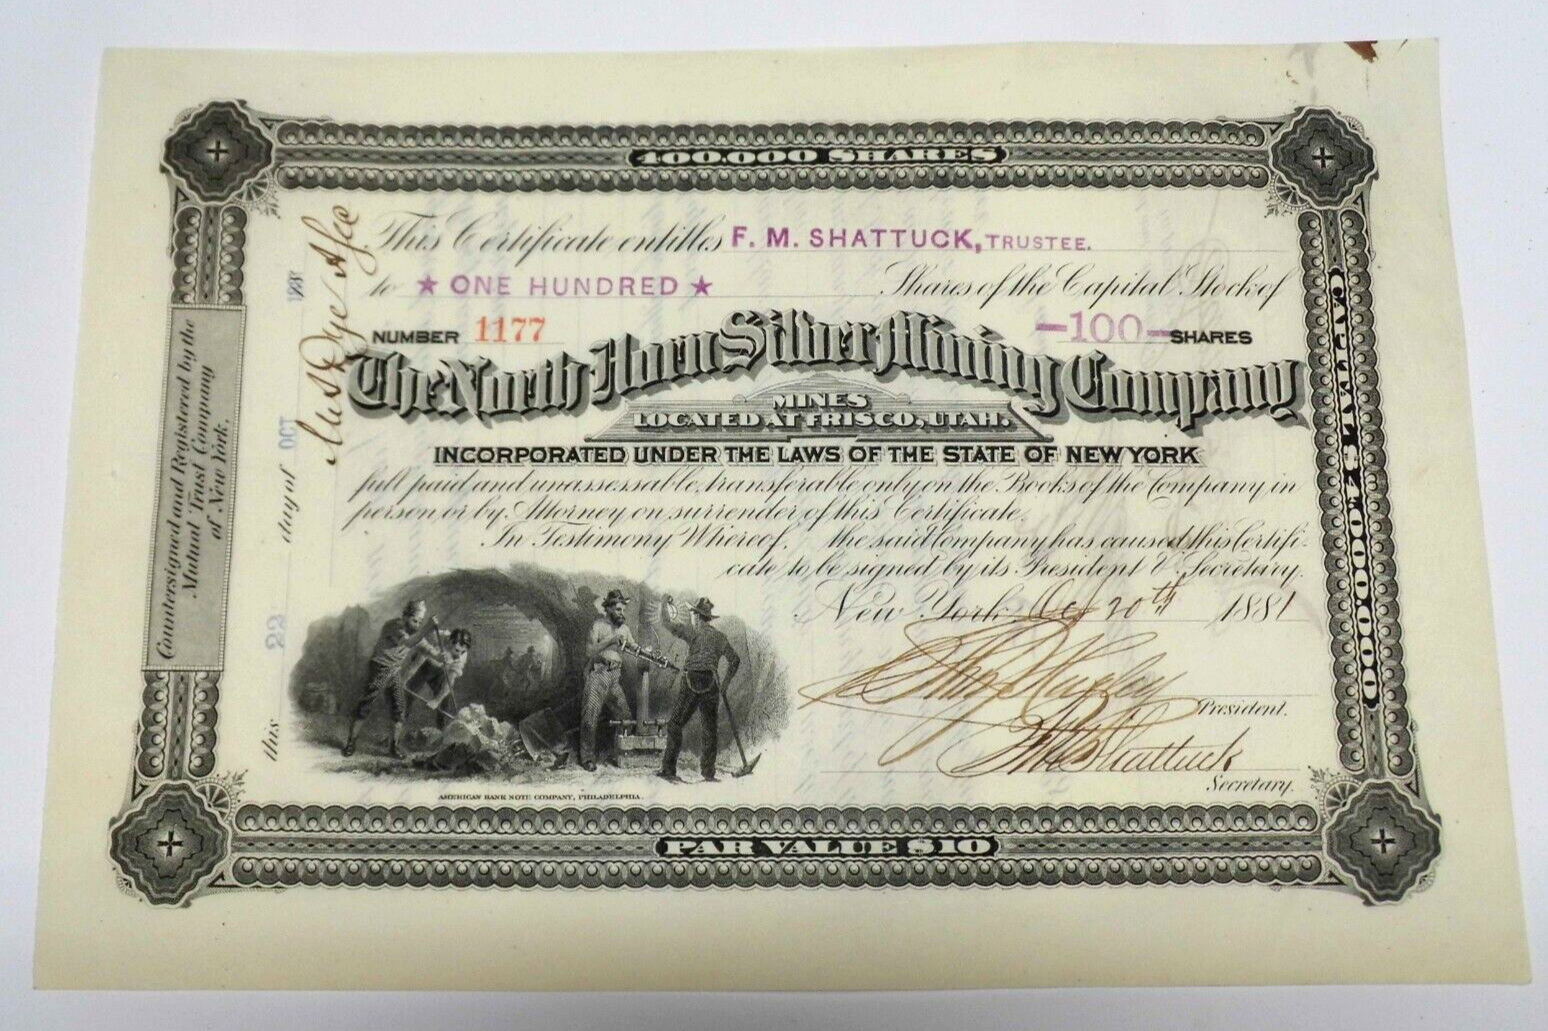 400.000 SHARES
This Certificate entitles F. M. SHATTUCK, TRUSTEE.
to ★ ONE HUNDRED ★ Shares of the Capital Stock of
NUMBER 1177 -100- SHARES
The North Horn Silver Mining Company
MINES
LOCATED AT FRISCO, UTAH.
INCORPORATED UNDER THE LAWS OF THE STATE OF NEW YORK
full paid and unassessable, transferable only on the Books of the Company in
person or by Attorney on surrender of this Certificate.
In Testimony Whereof, the said Company has caused this Certifi-
cate to be signed by its President & Secretary.
New York Oct 20th 1881
President.
Shattuck
Secretary.
AMERICAN BANK NOTE COMPANY, PHILADELPHIA.
PAR VALUE $10
CAPITAL $4.000.000
Countersigned and Registered by the
Mutual Trust Company
of New York.
this 22 day of OCT